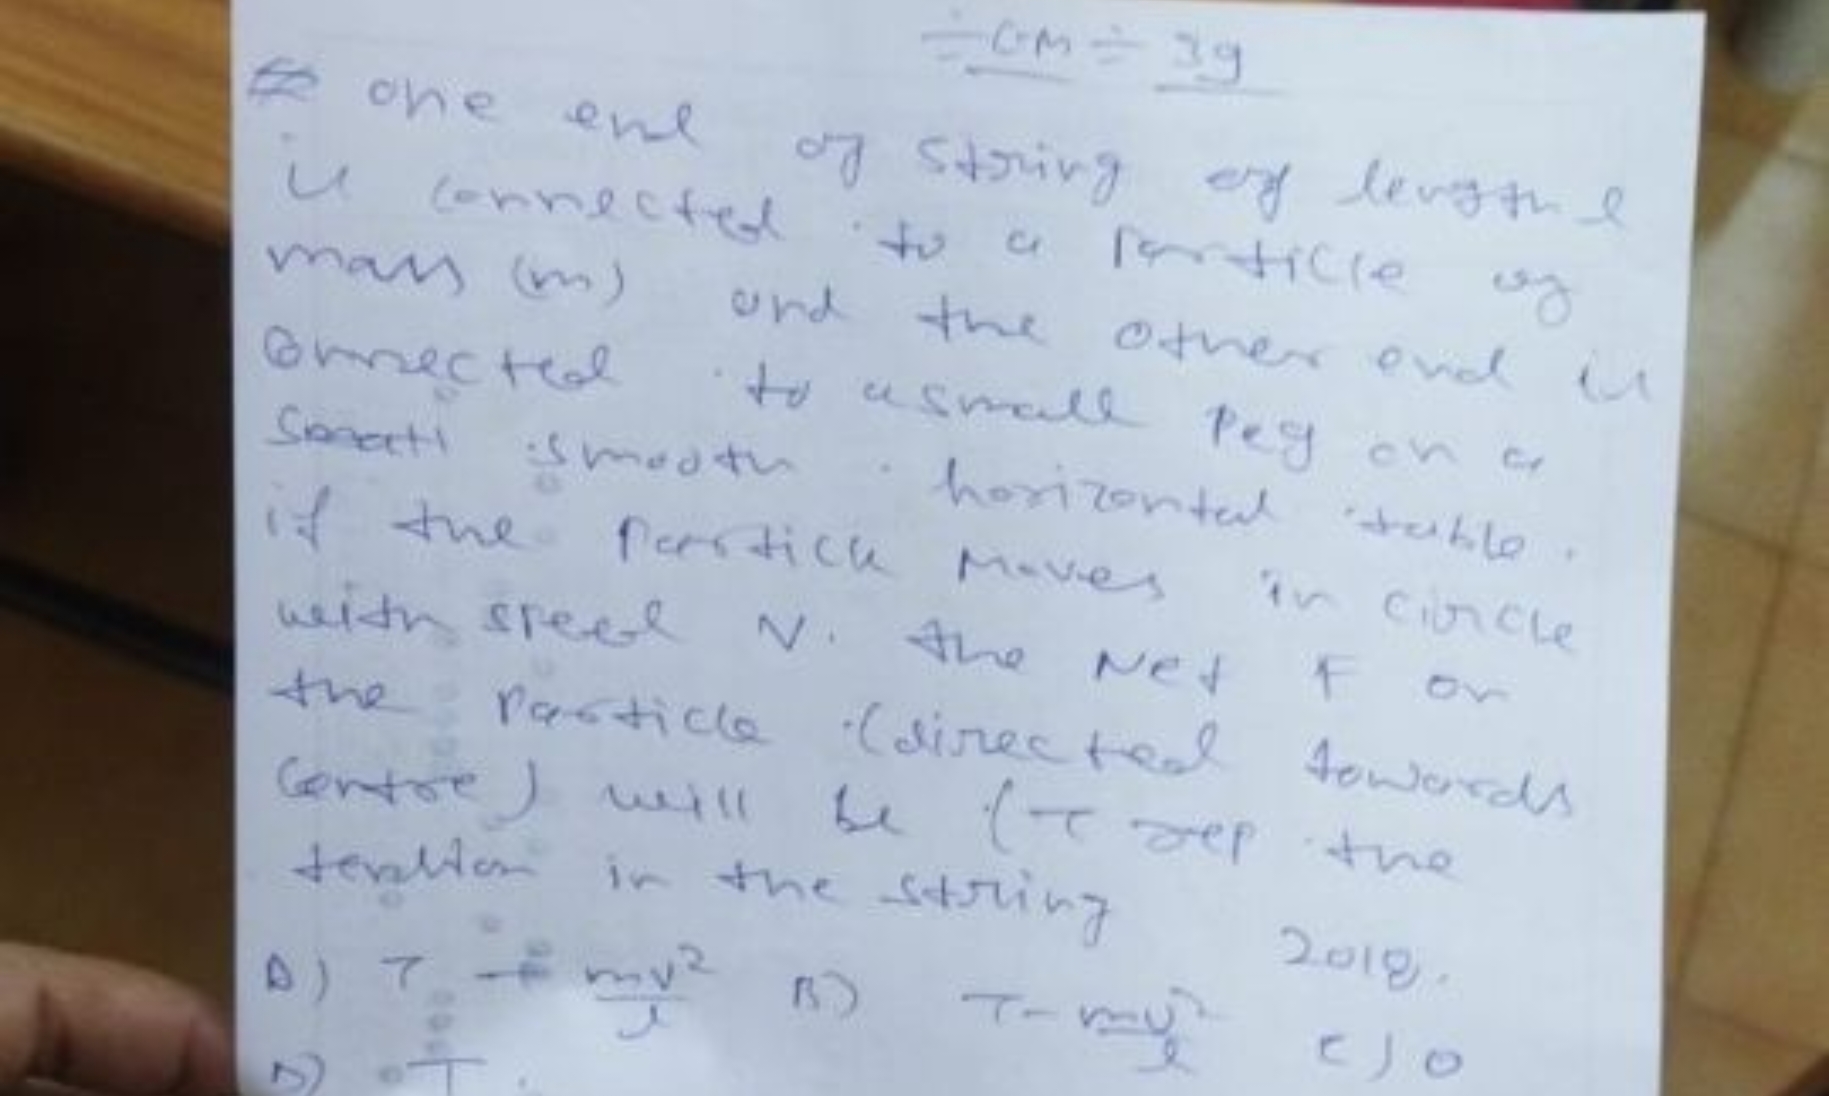 ÷ GM ÷ 3g
one end of string of length l
is connected to a particle of
mass (m) and the other end is
connected to a small peg on a
smooth horizontal table.
if the particle moves in circle
with speed v. the Net F on
the particle (directed towards
centre) will be (T rep the
tension in the string
2018.
A) T + mv²/l B) T - mv²/l C) 0
D) T.